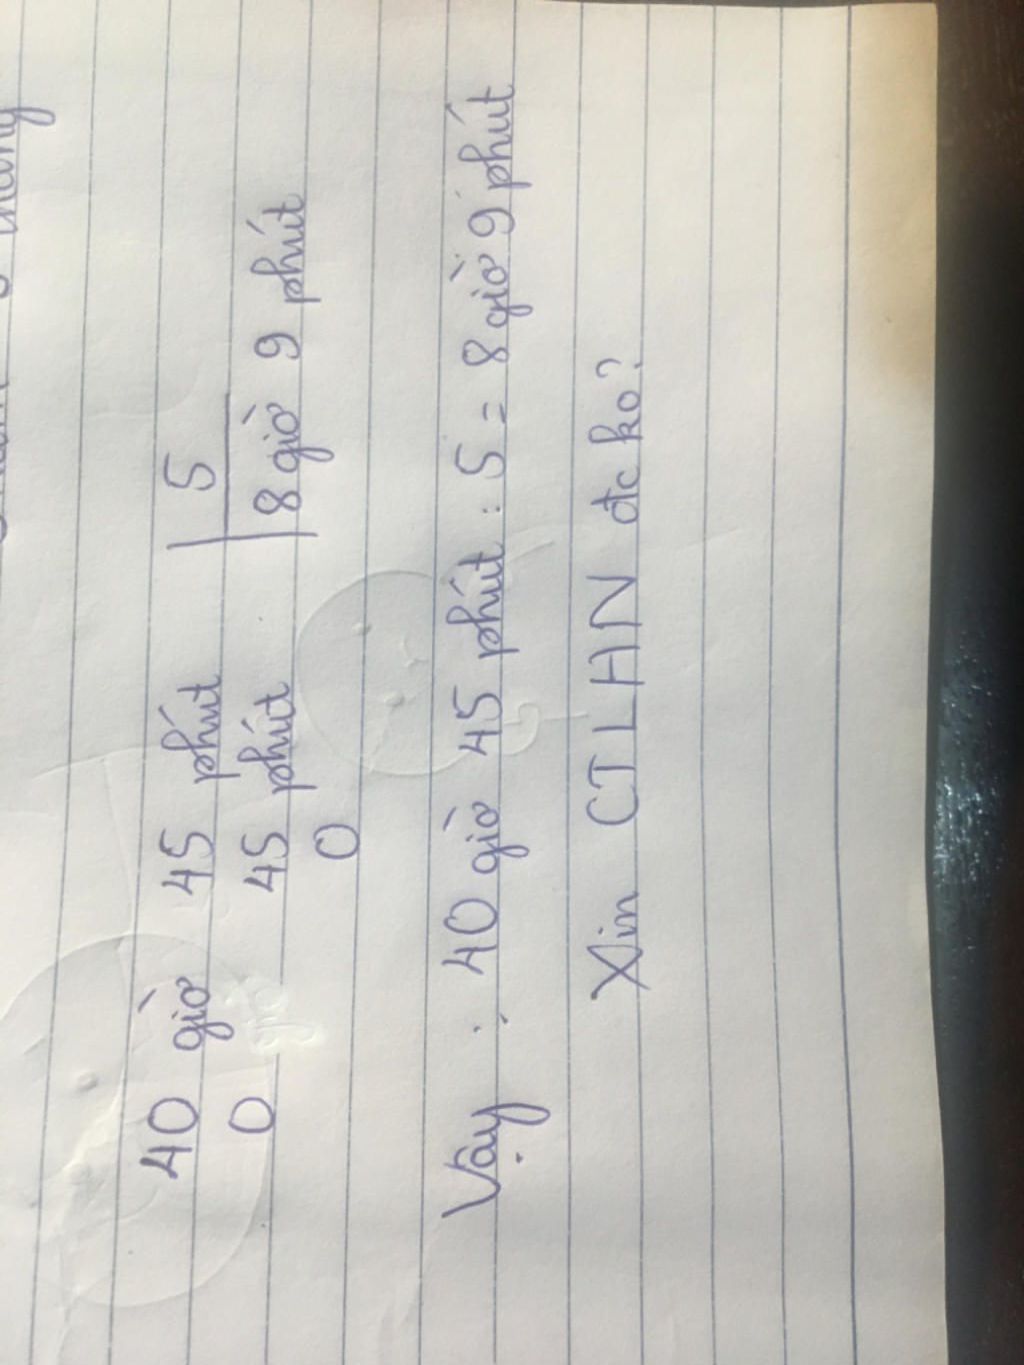 40 giờ 45 phút 5
0 45 phút 8 giờ 9 phút
0
Vậy : 40 giờ 45 phút : 5 = 8 giờ 9 phút
Xin CTLHN đc ko?